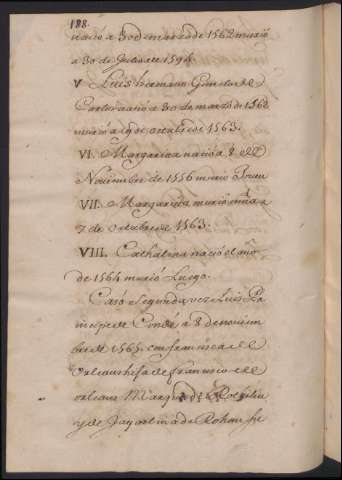 188.
nació a 30 de marzo de 1562 murió
a 30 de Julio de 1594.
V Luis hermano Gemelo de
Carlos nació a 30 de marzo de 1562
murió a 19 de octubre de 1563.
VI. Margarita nació a 8 de
Noviembre de 1556 murio
VII. Margarita murió niña a
7 de octubre de 1563.
VIII. Cathalina nació el año
de 1564 murió Luego.
Casó segunda vez Luis Prin
cipe de Condé a 8 de noviem
bre de 1565. con francisca de
orleans hija de francisco de
orleans Marques de Rothelin
y de Jaquelina de Rohan